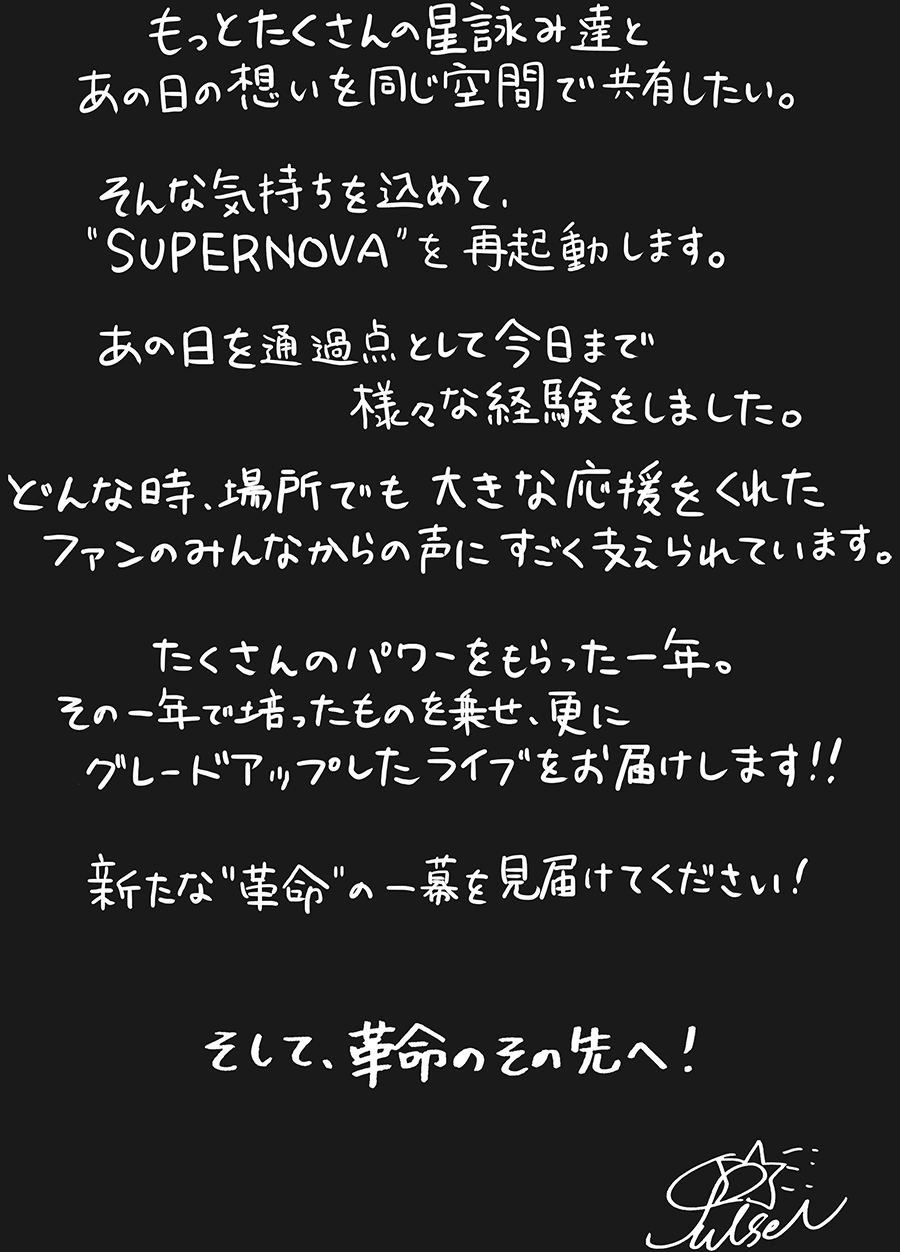 もっとたくさんの星詠み達と
あの日の想いを同じ空間で共有したい。
そんな気持ちを込めて、
"SUPERNOVA"を再起動します。
あの日を通過点として今日まで
様々な経験をしました。
どんな時、場所でも大きな応援をくれた
ファンのみんなからの声にすごく支えられています。
たくさんのパワーをもらった一年。
その一年で培ったものを乗せ、更に
グレードアップしたライブをお届けします!!
新たな"革命"の一幕を見届けてください!
そして、革命のその先へ!